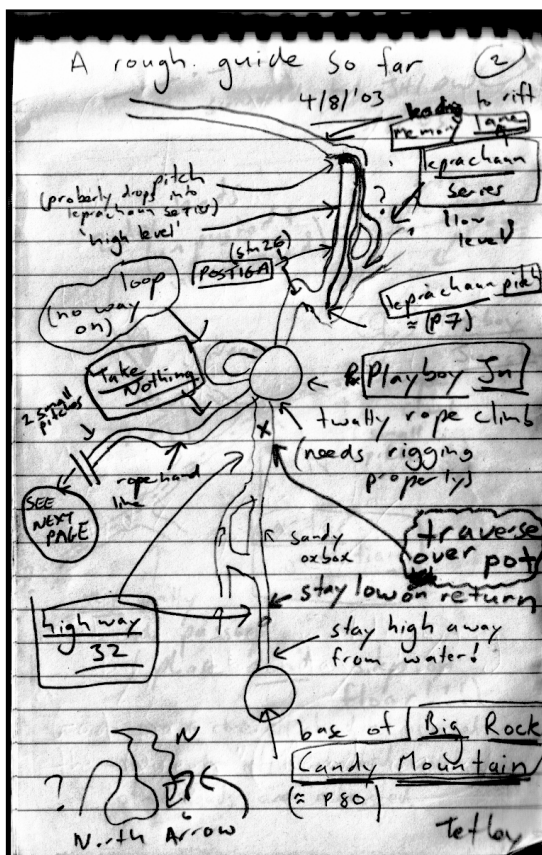 A rough guide so far
2
4/8/'03
leading to rift
memory lane
leprachaun
series
(low
level)
?
pitch
(probably drops into
leprachaun series)
'high level'
(stn 26)
POSTIGA
leprachaun pitch
≈ (P7)
loop
(no way
on)
Take
Nothing
Playboy Jn
twatty rope climb
(needs rigging
properly)
2 small
pitches
rope hand
line
SEE
NEXT
PAGE
x
sandy
oxbox
traverse
over pot
stay low on return
highway
32
stay high away
from water!
base of Big Rock
Candy Mountain
(≈ P80)
?
N
North Arrow